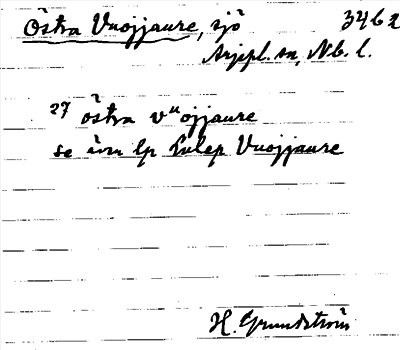 Östra Vuojjaure, sjö 3462
Arjepl. sn, Nb. l.
27 östra vᵘojjaure
se även lp Lulep Vuojjaure
H. Grundström